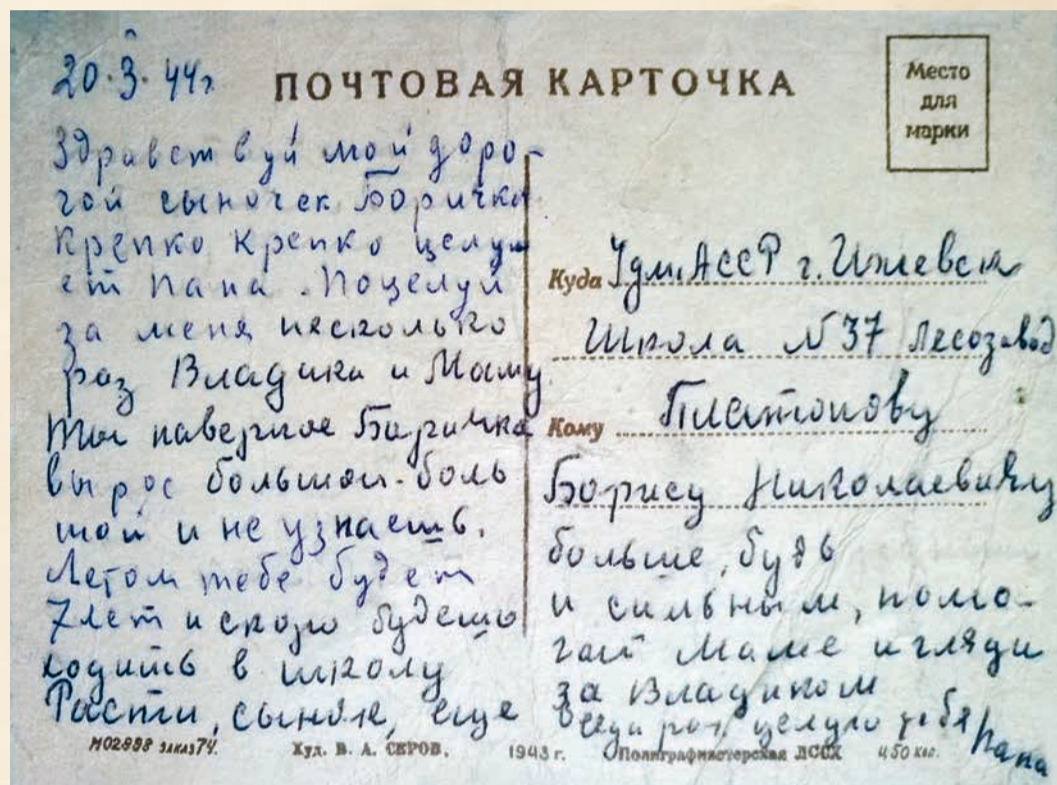 20.3.44г.
ПОЧТОВАЯ КАРТОЧКА
Место
для
марки
Здравствуй мой доро-
гой сыночек Боричка
Крепко крепко целу
ет папа. Поцелуй
за меня несколько
раз Владика и Маму.
Ты наверное Боричка
вырос большой-боль
шой и не узнаешь.
Летом тебе будет
7 лет и скоро будешь
ходить в школу
Расти, сынок, еще
Куда Удм.АССР г. Ижевск
Школа N 37 Лесозавод
Кому Платонову
Борису Николаевичу
больше, будь
и сильным, помо-
гай Маме и гляди
за Владиком
раз целую тебя
Папа
МО2898 ЗАКАЗ 74.
Худ. В. А. СЕРОВ.
1943 г.
Полиграфмастерская ЛССХ